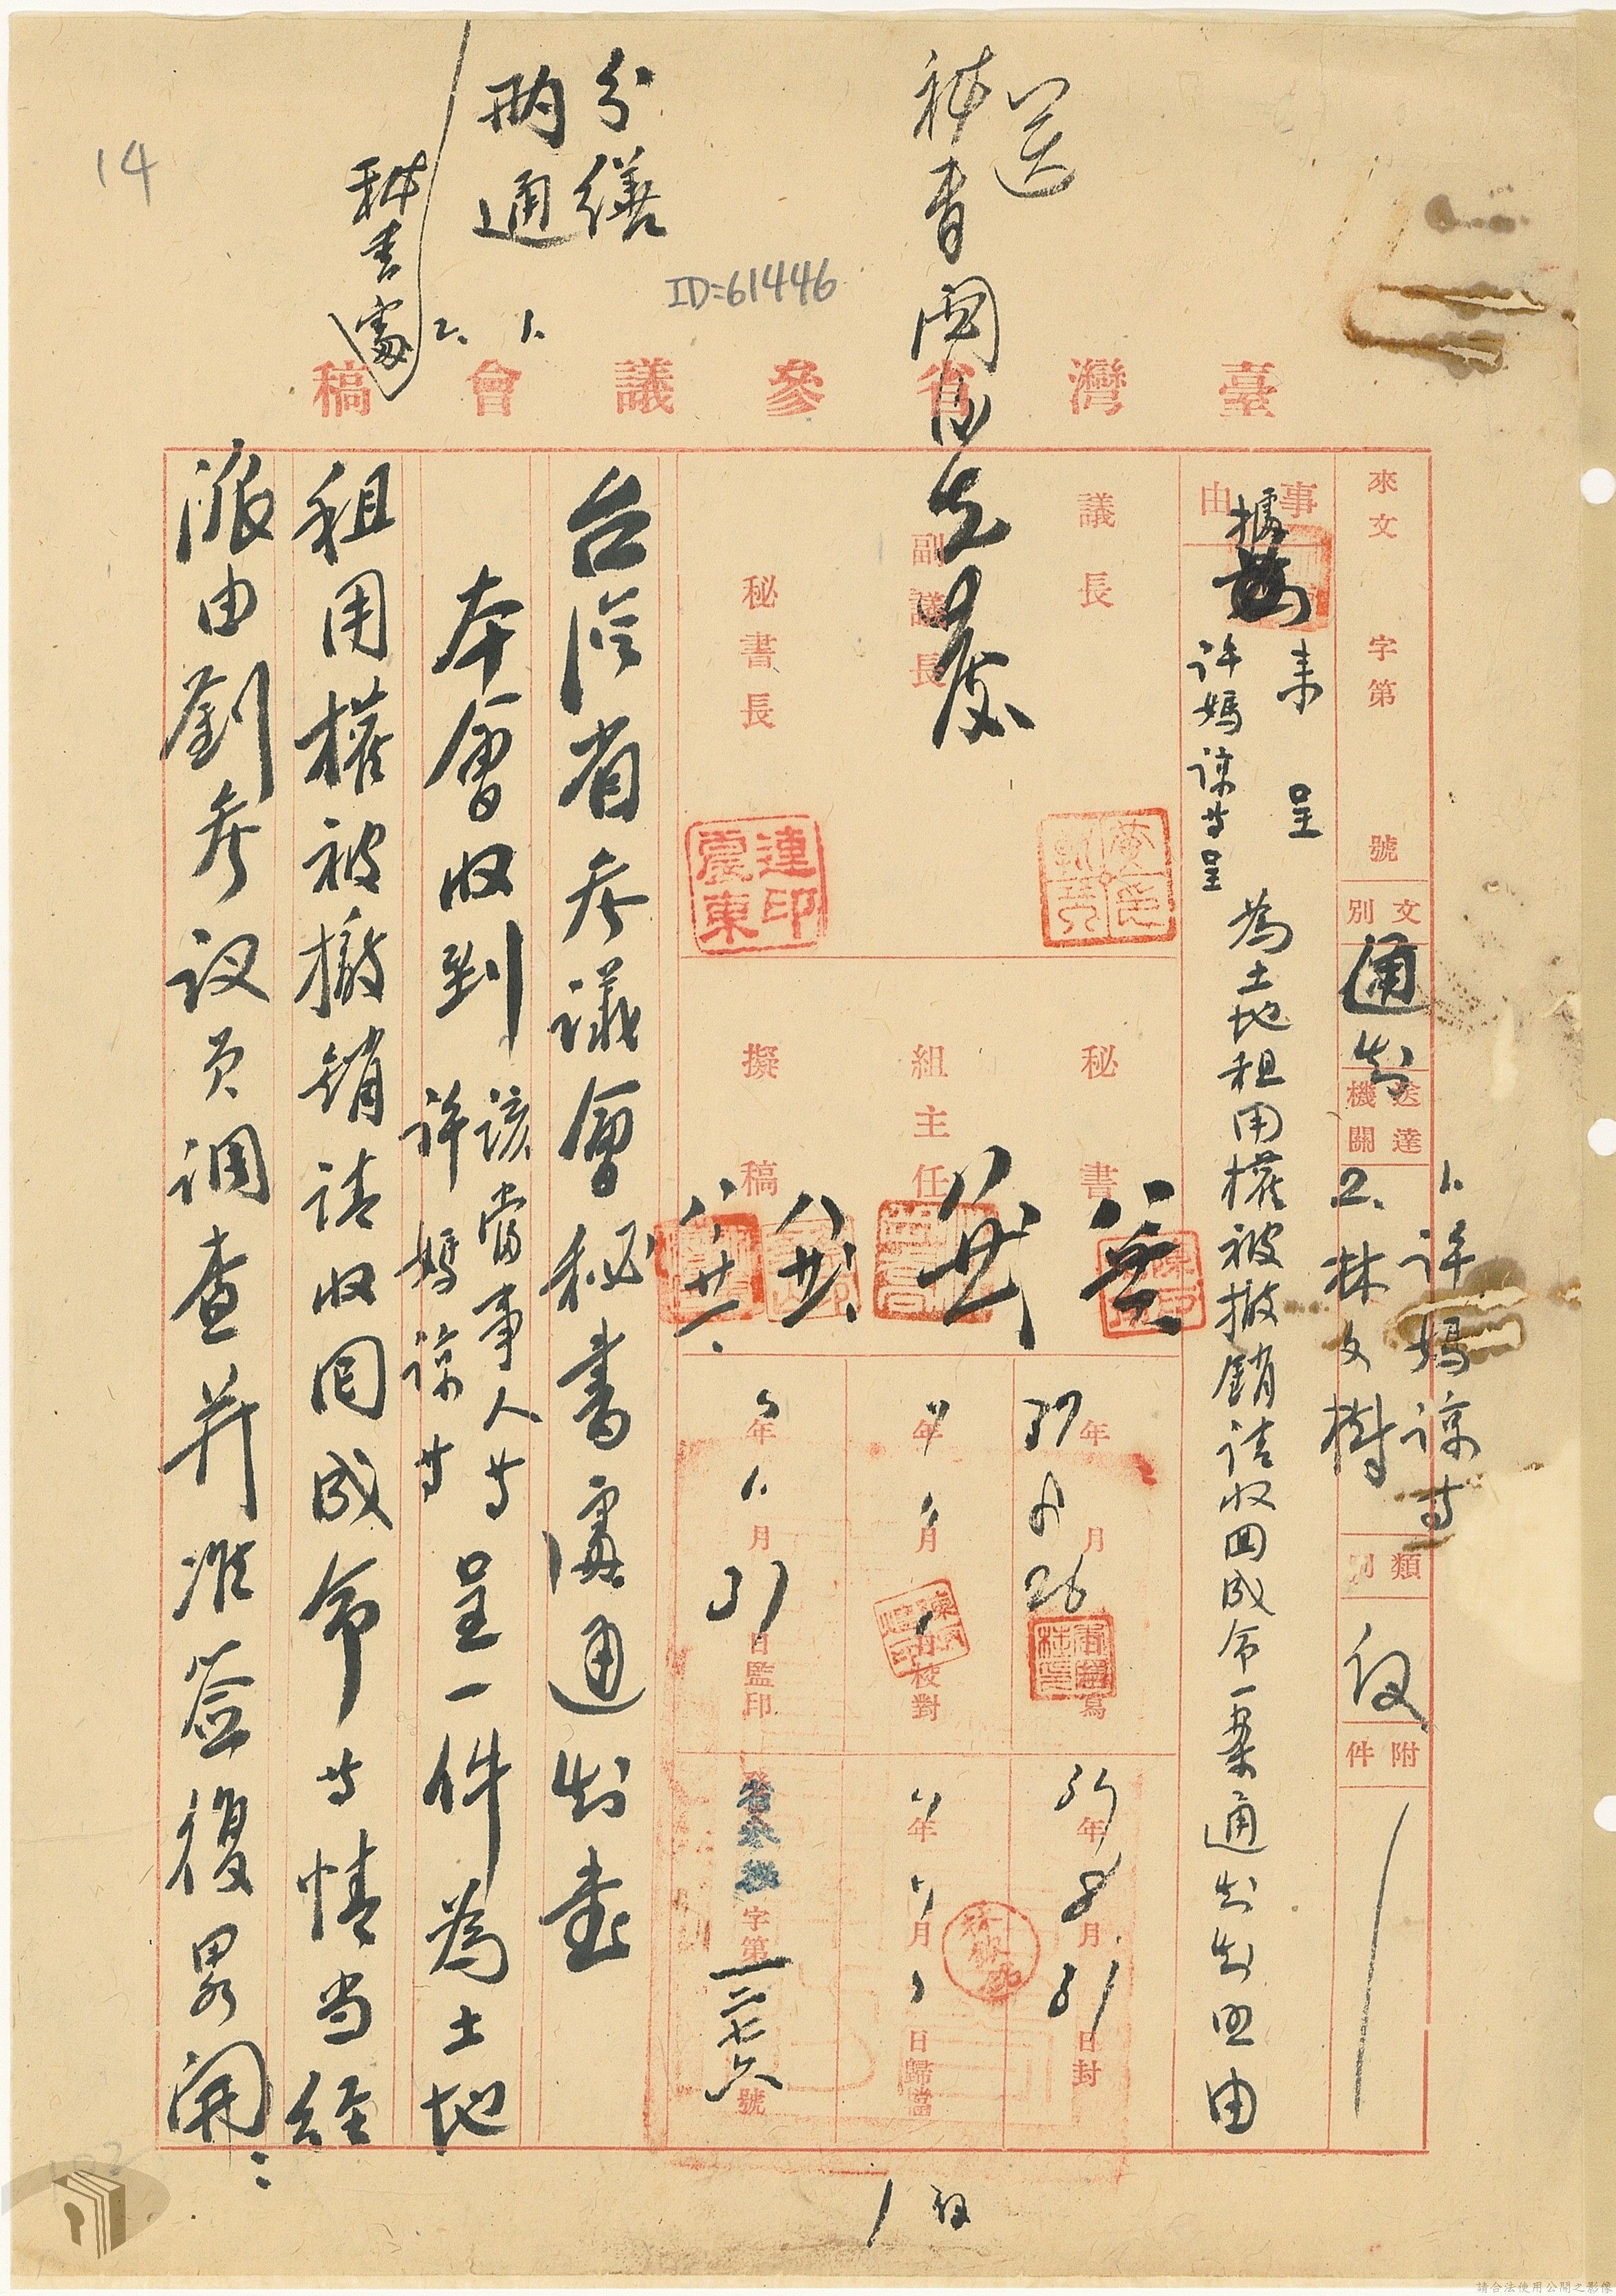 送
秘書閱後先發
分繕
兩通
1.
2.
秘書處
14
ID=61446
臺灣省參議會稿
來文 字第 號
文別 通知
送達機關
1. 許媽諒等
2. 林文樹
類別
附件
事由
據
來呈
許媽諒等呈
為土地租用權被撤銷請收回成命一案通知知照由
議長
副議長
秘書長
連震東印
秘書
組主任
擬稿
37年8月26日繕寫
年月日校對
年月31日監印
37年8月31日封
年月日歸檔
省參秘字第一二七六號
台灣省參議會秘書處通知書
本會收到
該當事人等
許媽諒等
呈一件為土地
租用權被撤銷請收回成命等情當經
派由劉參議員調查并准簽復畧開：
請合法使用公開之影像